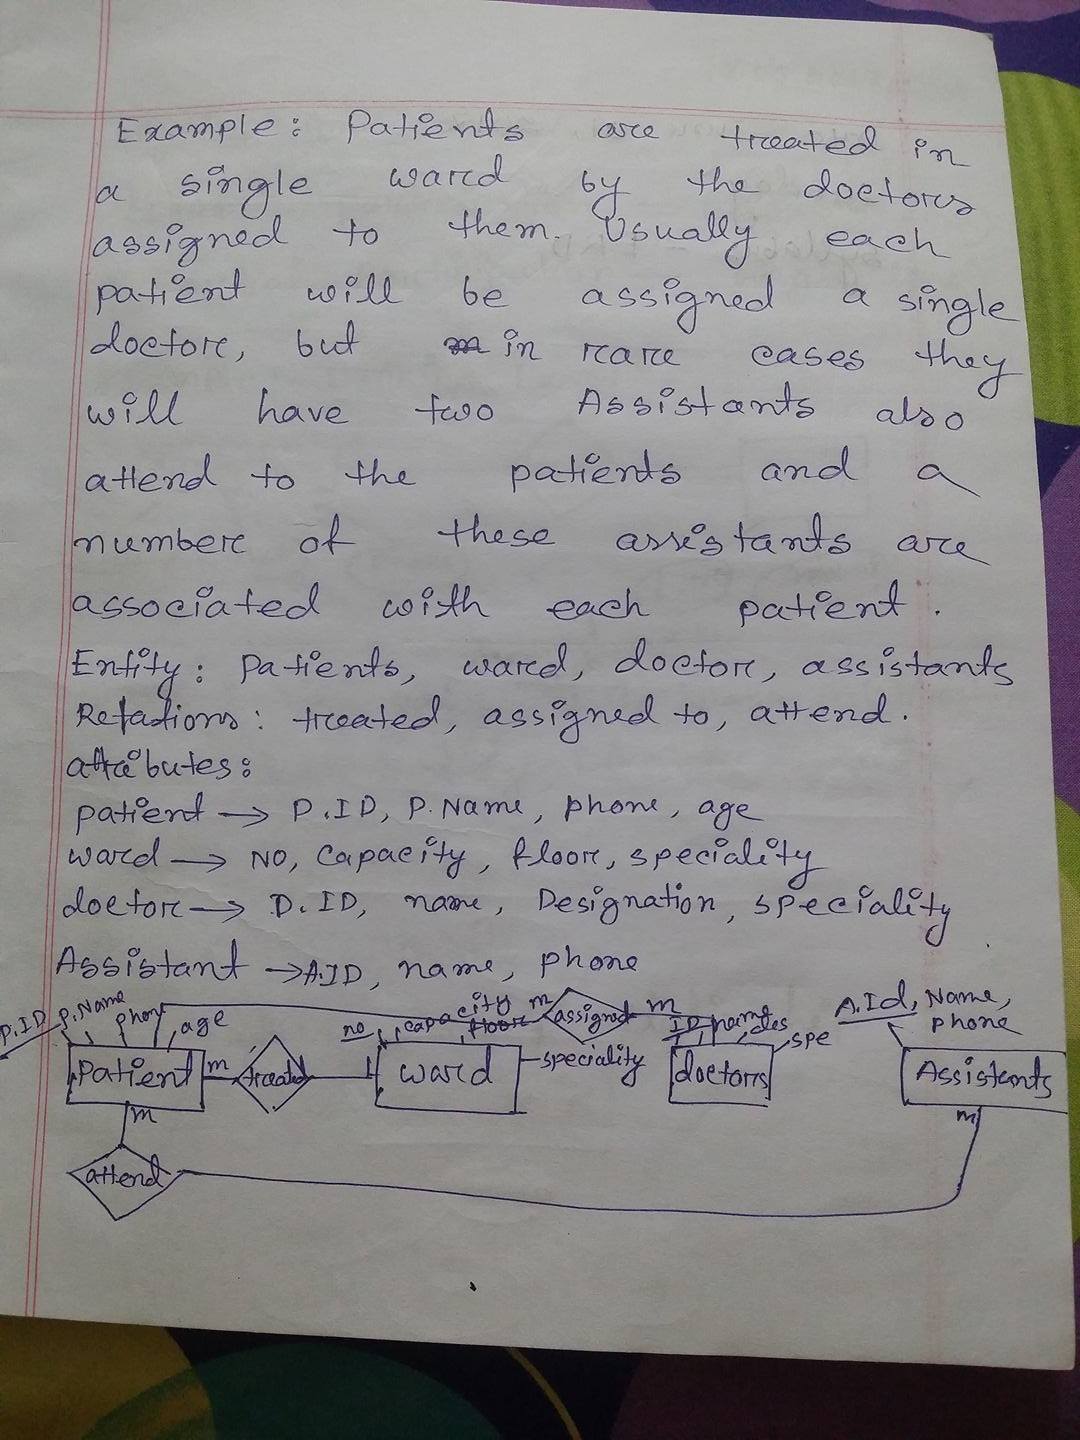 Example: Patients are treated in
a single ward by the doctors
assigned to them. Usually each
patient will be assigned a single
doctor, but in rare cases they
will have two Assistants also
attend to the patients and a
number of these assistants are
associated with each patient.
Entity: Patients, ward, doctor, assistants
Relations: treated, assigned to, attend.
attributes:
patient → P.ID, P.Name, phone, age
ward → NO, Capacity, floor, speciality
doctor → D.ID, name, Designation, speciality
Assistant → A.ID, name, phone
P.ID P.Name phone age
no capacity floor speciality
m assigned m
ID name des spe
A.Id, Name,
phone
Patient m treated 1 ward doctors Assistants
m m
attend